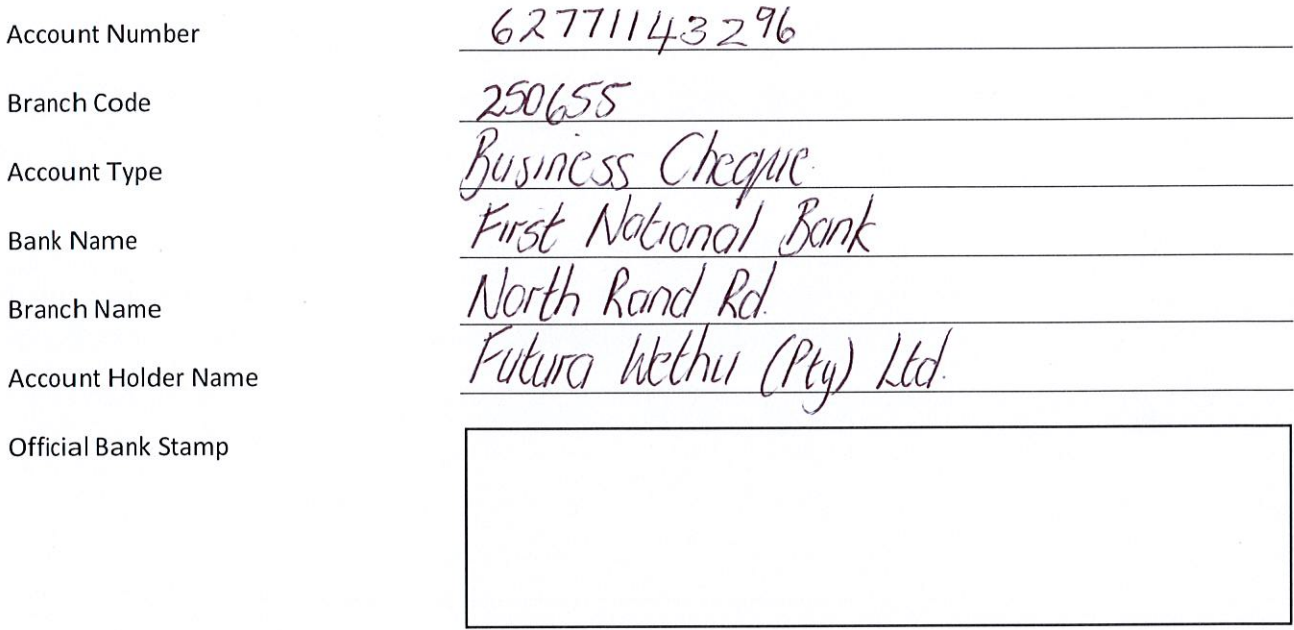 Account Number 62771143296
Branch Code 250655
Account Type Business Cheque.
Bank Name First National Bank
Branch Name North Rand Rd.
Account Holder Name Futura Wethu (Pty) Ltd.
Official Bank Stamp